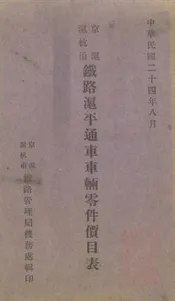 中華民國二十四年八月
京滬
滬杭甬
鐵路滬平通車車輛零件價目表
京滬
滬杭甬
鐵路管理局機務處編印